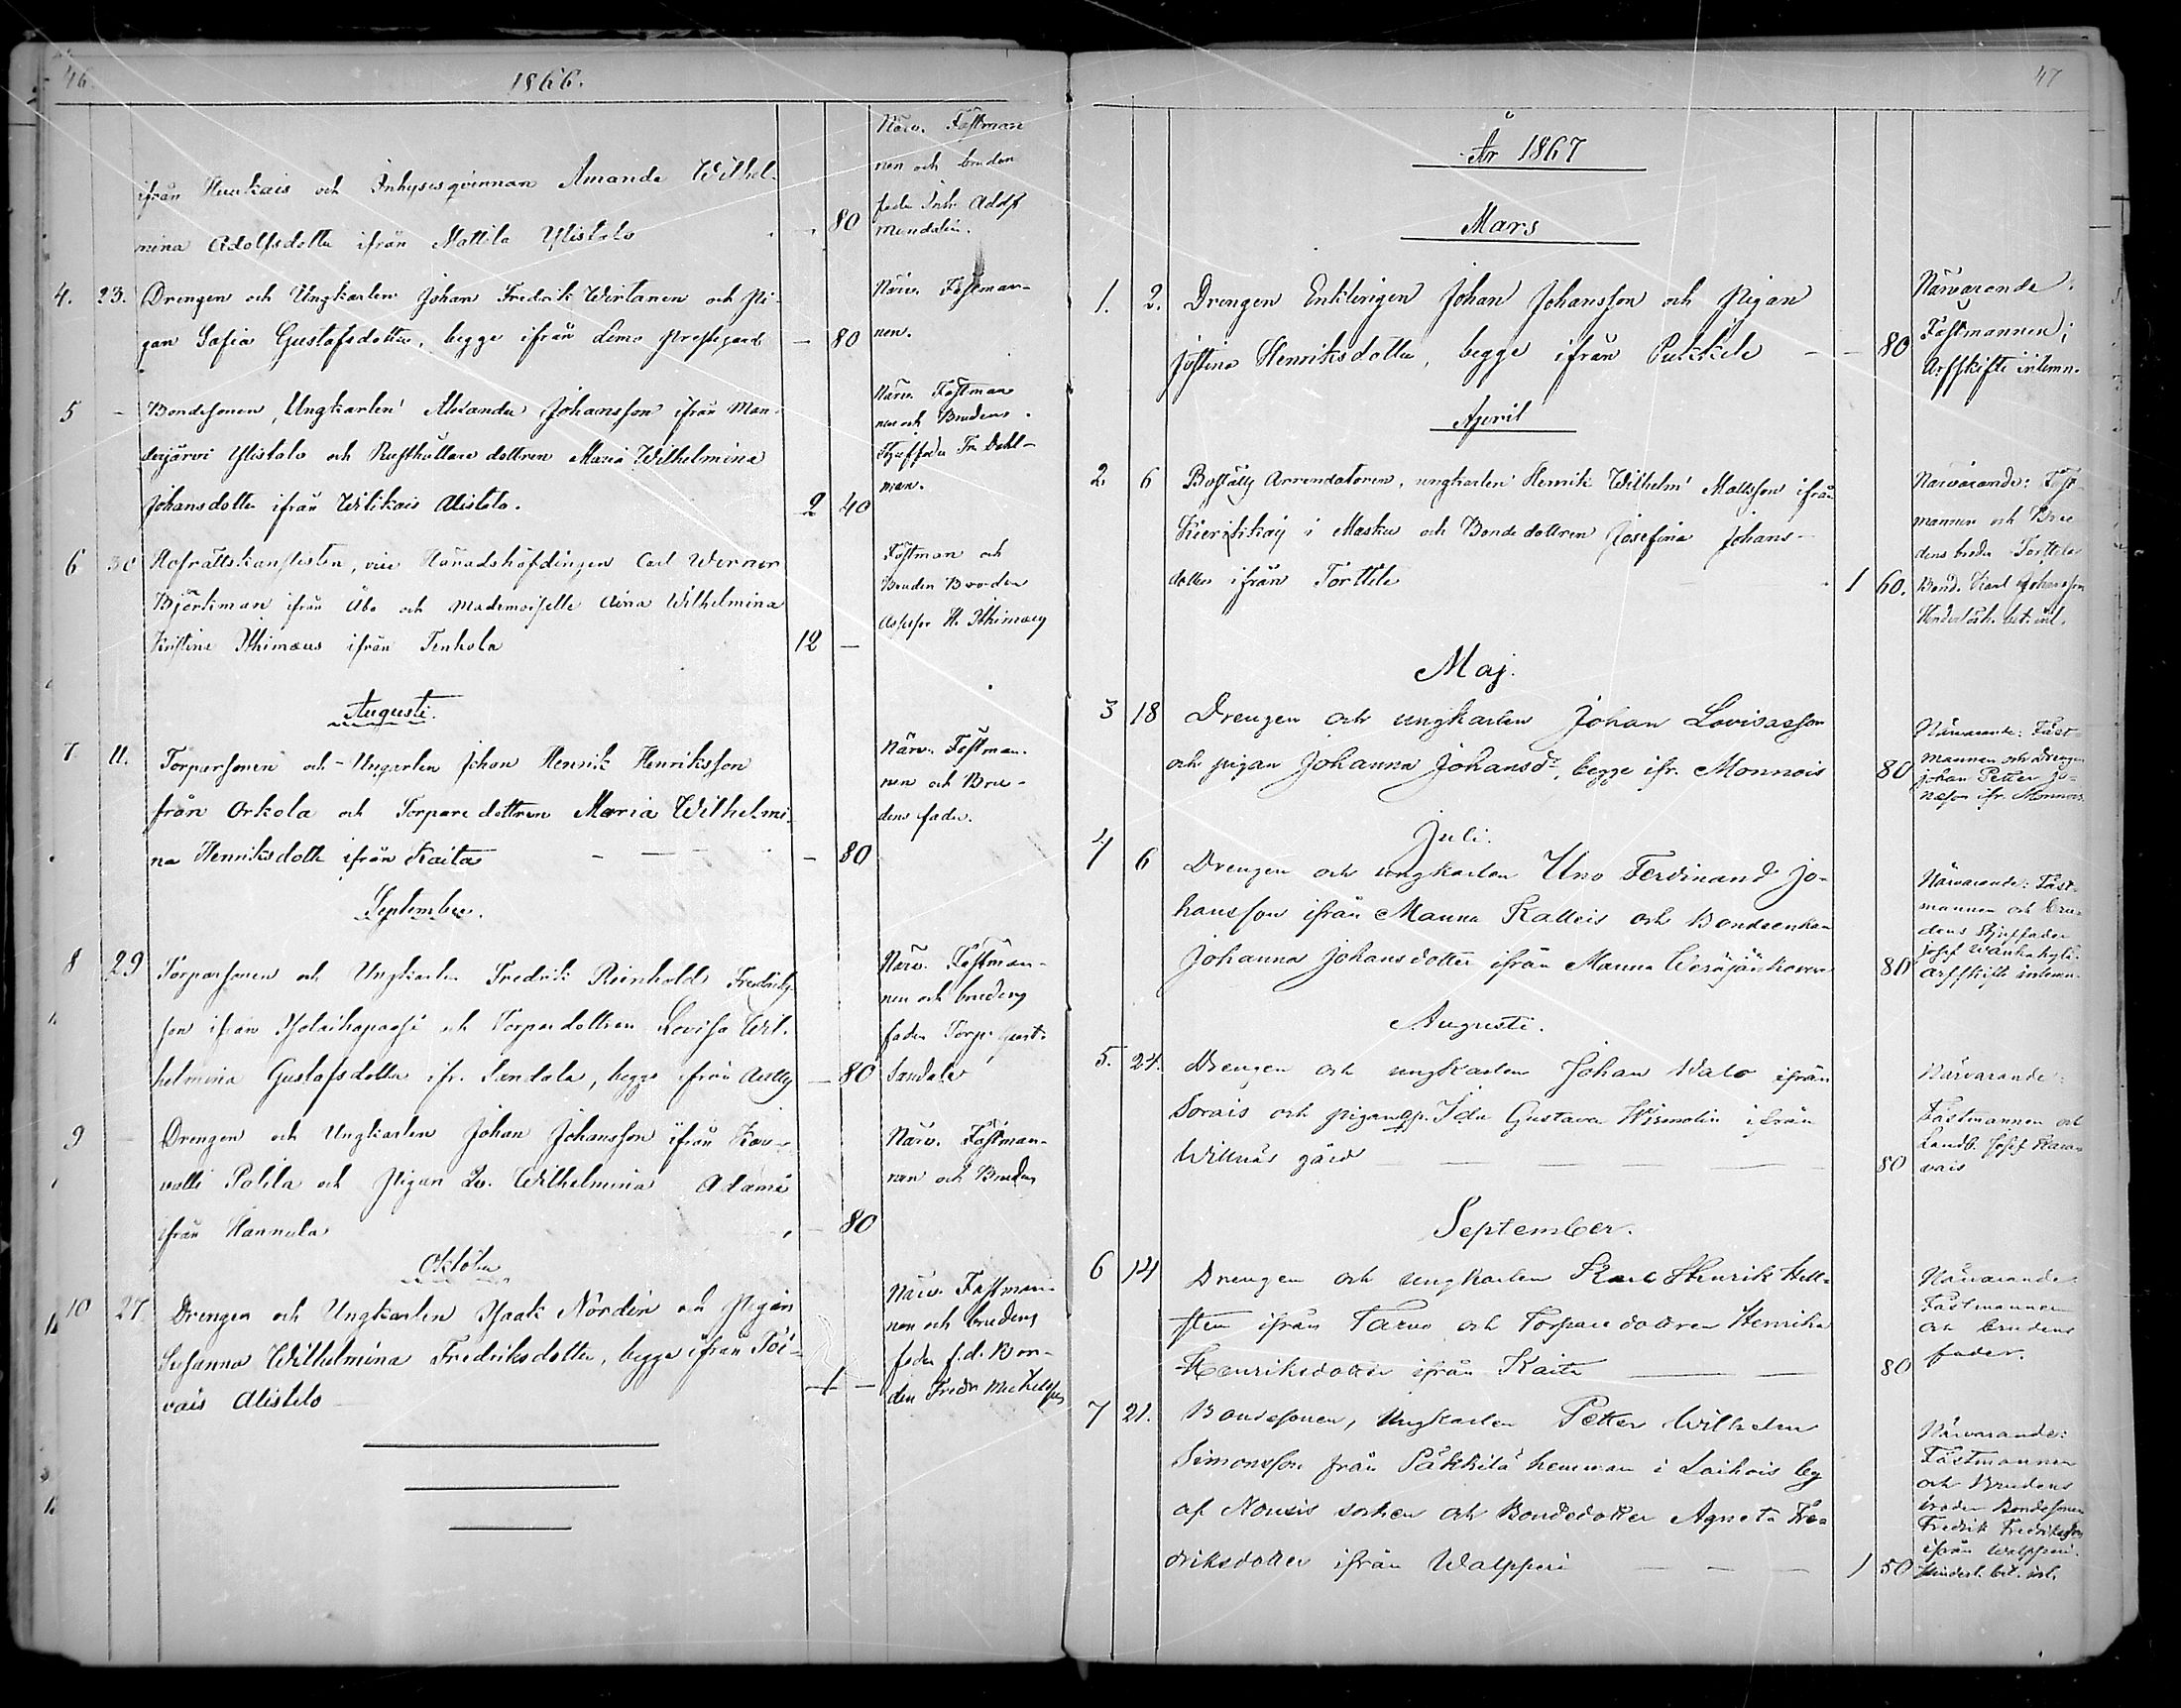 46.
1866.
ifrån Huukais och Inhysesqvinnan Amanda Wilhel-
mina Adolfsdotter ifrån Mattila Ylistalo - 80
Närv. Fästman
nen och bruden
fader Inh. Adolf
4. 23. Drengen och Ungkarlen Johan Fredrik Wirtanen och Pi-
gan Sofia Gustafsdotter, begge ifrån Lemo Prestgård - 80
Närv. Fästman-
nen.
5 - Bondesonen, Ungkarlen Alexander Johansson ifrån Man-
nerjärvi Ylistalo och Rusthållare dottren Maria Wilhelmina
Johansdotter ifrån Wilikais Alistalo. 2 40
Närv. Fästman
nen och Brudens
Styffader Fr. Dahl-
man.
6 30 Hofrättskanslisten, vice Häradshöfdingen Carl Werner
Björkman ifrån Åbo och Mademoiselle Aina Wilhelmina
Kristina Ithimæus ifrån Tenhola 12 -
Fästman och
Bruden Broder
Assessor H. Ithimæus
Augusti.
7 11. Torparsonen och Ungkarlen Johan Henrik Henriksson
från Orkola och Torpare dottren Maria Wilhelmi-
na Henriksdotter ifrån Kaita - - - 80
Närv. Fästman-
nen och Bru-
dens fader.
September.
8 29 Torparsonen och Ungkarlen Fredrik Reinhold Fredriks-
son ifrån och Torpardottren Lovisa Wil-
helmina Gustafsdotter ifr. Sandala, begge ifrån - 80
Närv. Fästman-
nen och brudens
fader Torp. Gust.
Sandala
9 - Drengen och Ungkarlen Johan Johansson ifrån Kar-
valli Palila och Pigan Ev. Wilhelmina Adami
ifrån Hannula - 80
Närv. Fästman-
nen och Brudens
Oktober
10 27. Drengen och Ungkarlen Isaak Nordin och Pigan
Susanna Wilhelmina Fredriksdotter, begge ifrån Toi-
vais Alistalo 1 -
Närv. Fästman-
nen och brudens
fader f.d. Bon-
den Fredr. Michelsson
47
År 1867
Mars
1. 2. Drengen Enklingen Johan Johansson och Pigan
Justina Henriksdotter, begge ifrån Pukkila - - 80
Närvarande:
Fästmannen;
Arfskifte inlemn.
April
2. 6 Boställs Arrendatoren, ungkarlen Henrik Wilhelm Mattsson ifrån
i Masku och Bonde dottren Josefina Johans-
dotter ifrån Torttila 1 60.
Närvarande: Fäst-
mannen och Bru
dens broder Torttila
Bond. Karl Johansson
Hinderlösh. bet. inl.
Maj.
3 18 Drengen och ungkarlen Johan Lovisasson
och pigan Johanna Johansdr, begge ifr. Monnois 80
Närvarande: Fäst-
mannen och Drengen
Johan Petter Jo-
nasson ifr. Monnois
Juli.
4 6 Drengen och ungkarlen Uno Ferdinand Jo-
hansson ifrån Manna Kallois och Bondeenkan
Johanna Johansdotter ifrån Manna 80
Närvarande: Fäst-
mannen och bru-
dens Styffader
Josef Wanhakylä
arfskifte inlemn.
Augusti.
5. 24. Drengen och ungkarlen Johan Walo ifrån
Sorais och pigan Ida Gustava Wirmolin ifrån
Willnäs gård - - - - 80
Närvarande:
Fästmannen och
Landb. Josef
September.
6 14 Drengen och ungkarlen Karl Henrik Hell-
sten ifrån Tarvo och Torpare dottren Henrika
Henriksdotter ifrån Kaita - - 80
Närvarande
Fästmannen
och brudens
fader.
7 21. Bondesonen, Ungkarlen Petter Wilhelm
Simonsson från Säkkilä hemman i Laihois by
af Nousis socken och Bondedotter Agneta Fre-
driksdotter ifrån Walpperi - - - 1 50
Närvarande:
Fästmannen
och Brudens
broder Bondesonen
Fredrik Fredriksson
ifrån Walpperi.
Hinderl. bet. inl.